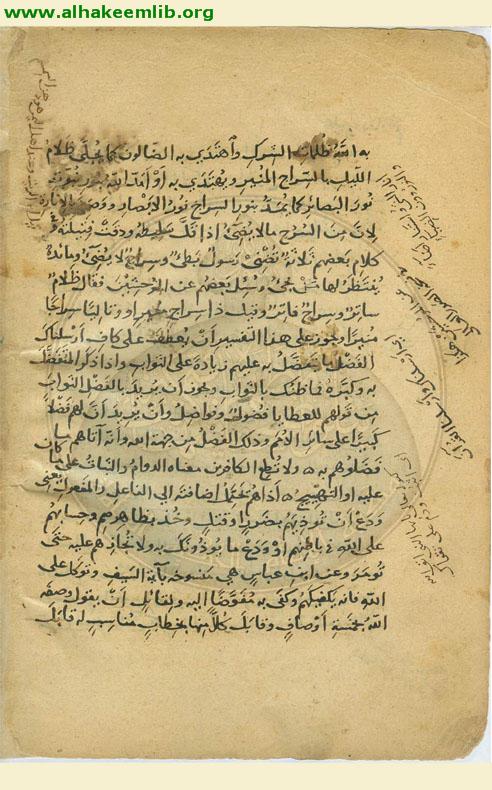 www.alhakeemlib.org
به الله ظلمات الشرك واهتدى به الضالون كما يجلى ظلام
الليل بالسراج المنير ويهتدى به أو أمد الله بنور نبوته
نور البصائر كما يمد بنور السراج نور الأبصار ووصف بالإنارة
لأن من السرج ما لا يضيء إذا قل سليطه ودقت فتيلته و
كلام بعضهم ثلاثة تضني رسول بطيء وسراج لا يضيء ومائدة
ينتظر لها من يجيء وسئل بعضهم عن الموحشين فقال ظلام
ساتر وسراج فاتر وقيل ذا سراج منير أو وتاليا سراجا
منيرا ويجوز على هذا التفسير أن يعطف على كاف أرسلناك
الفضل ما يتفضل به عليهم زيادة على الثواب وإذا ذكر المتفضل
به وكبره فما ظنك بالثواب ويجوز أن يريد بالفضل الثواب
من قولهم للعطايا فضول وفواضل وأن يريد أن لهم فضلا
كبيرا على سائر الأمم وذلك الفضل من جهة الله وأنه آتاهم ما
فضلوهم به ولا تطع الكافرين معناه الدوام والثبات على ما كان
عليه أو التهييج أذاهم يحتمل إضافته إلى الفاعل والمفعول يعني
ودع أن تؤذيهم بضرر أو قتل وخذ بظاهرهم وحسابهم
على الله في باطنهم أو ودع ما يؤذونك به ولا تجازهم عليه حتى
تؤمر وعن ابن عباس هي منسوخة بآية السيف وتوكل على
الله فإنه يكفيكهم وكفى به مفوضا إليه ولقائل أن يقول وصفه
الله بخمسة أوصاف وقابل كلا منها بخطاب مناسب له قابل